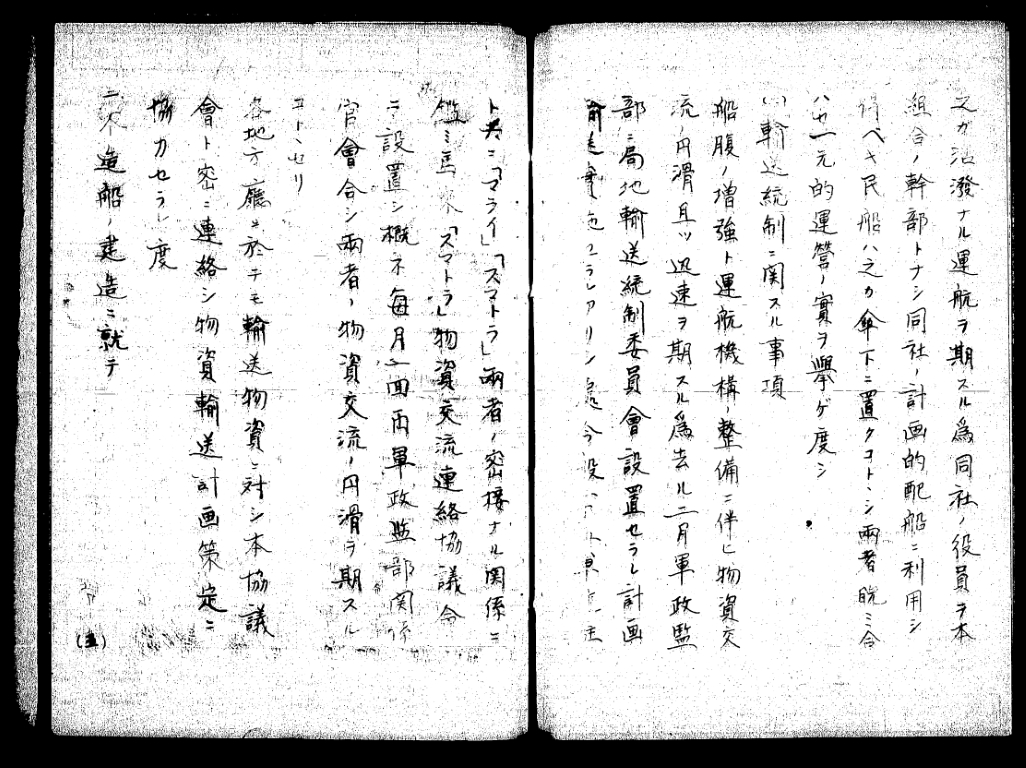 又カ活潑ナル運航ヲ期スル爲同社ノ役員ヲ本
組合ノ幹部トナシ同社ノ計画的配船ニ利用シ
得ベキ民船ハ之カ傘下ニ置クコトヽシ兩者
一元的運營ノ實ヲ擧ゲ度シ
輸送統制ニ関スル事項
船腹ノ増強ト運航機構ノ整備ニ伴ヒ物資交
流ノ円滑且ツ迅速ヲ期スル爲去ル二月軍政監
部ニ局地輸送統制委員會ノ設置セラレ計画
輸送
ト共ニ「マライ」「スマトラ」兩者ノ密接ナル関係ニ
鑑ミ「スマトラ」物資交流連絡協議会
ヲ設置シ概ネ毎月一回両軍政監部関係
官會合シ兩者ノ物資交流ノ円滑ヲ期スル
コトヽセリ
各地方廳ニ於テモ輸送物資ニ対シ本協議
會ト密ニ連絡シ物資輸送計画策定ニ
協力セラレ度
二、木造船ノ建造ニ就テ